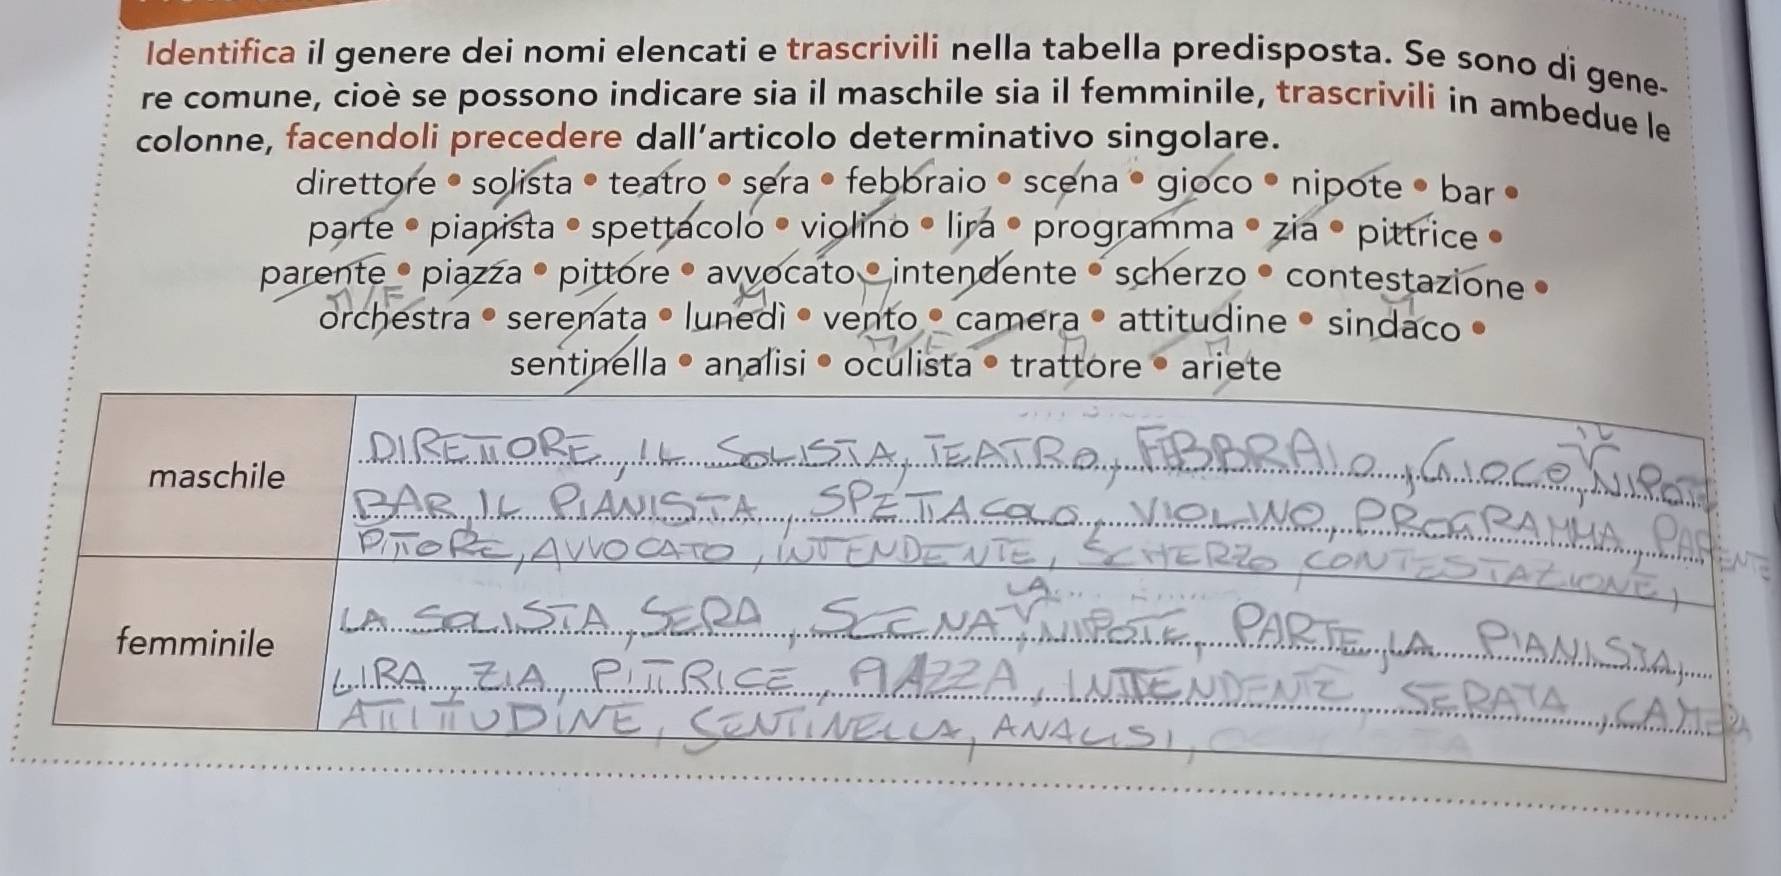 Identifica il genere dei nomi elencati e trascrivili nella tabella predisposta. Se sono di gene-
re comune, cioè se possono indicare sia il maschile sia il femminile, trascrivili in ambedue le
colonne, facendoli precedere dall'articolo determinativo singolare.
direttore • solista • teatro • sera • febbraio • scena • gioco • nipote • bar •
parte • pianista • spettacolo • violino • lira • programma • zia • pittrice •
parente • piazza • pittore • avvocato • intendente • scherzo • contestazione •
orchestra • serenata • lunedì • vento • camera • attitudine • sindaco •
sentinella • analisi • oculista • trattore • ariete
maschile
DIRETTORE, IL SOLISTA, TEATRO, FEBBRAIO, GIOCO, IL NIPOTE
BAR, IL PIANISTA, SPETTACOLO, VIOLINO, PROGRAMMA, PARENTE
PITTORE, AVVOCATO, INTENDENTE, SCHERZO, CONTESTAZIONE,
femminile
LA SOLISTA, SERA, SCENA, LA NIPOTE, PARTE, LA PIANISTA,
LIRA, ZIA, PITTRICE, PIAZZA, INTENDENTE, SERATA, CAMERA
ATTITUDINE, SENTINELLA, ANALISI,